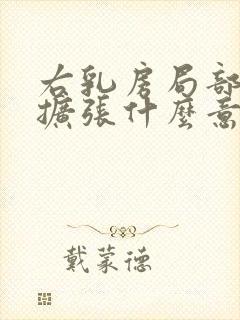 右乳房局部
擴張什麼意
戴蒙德